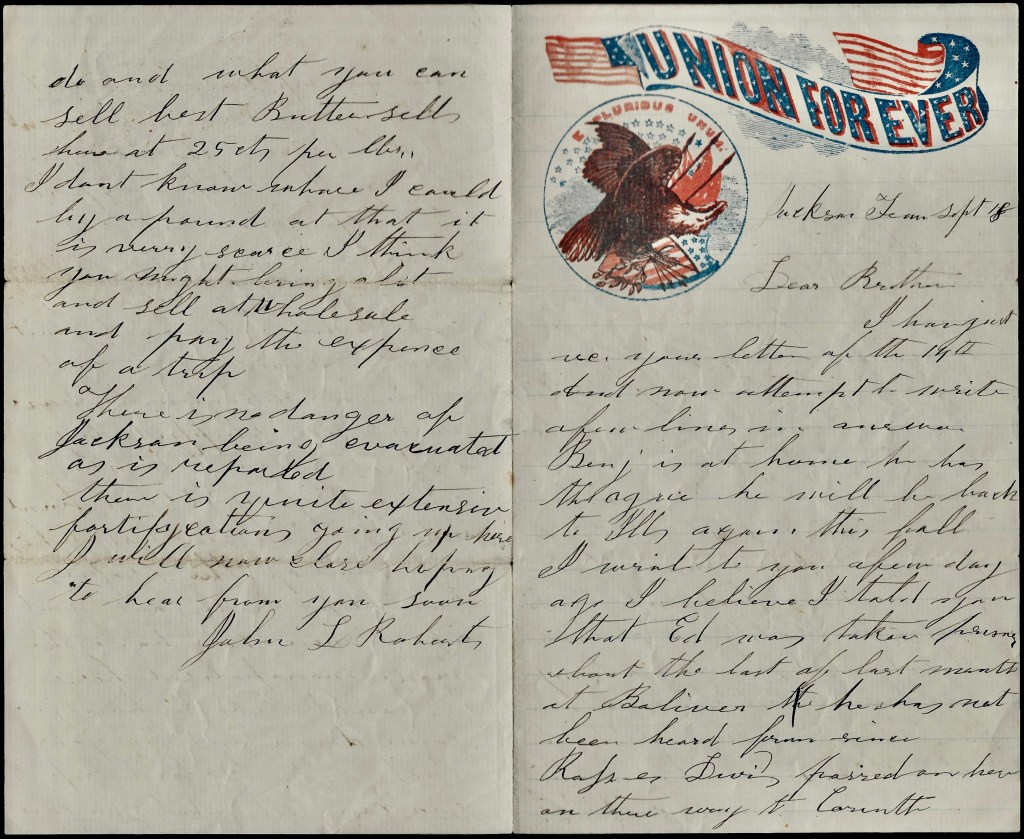 UNION FOR EVER
E PLURIBUS UNUM.
Jackson Tenn Sept 18
Dear Brother
I hav just
rec. your letter of the 14th
And now attempt to write
a few lines in answer
Benj is at home he has
the agrie he will be back
to Ills again this fall
I wrote to you a few day
ago I believe I told you
that Ed was taken prisoner
about the last of last month
at Boliver he has not
been heard from since
passed on here
on there way to Corinth
do and what you can
sell best Butter sells
here at 25 cts per lbs..
I dont know where I could
by a pound at that it
is verry scarce I think
you might bring a lot
and sell at Wholesale
and pay the expence
of a trip
There is no danger of
Jackson being evacuated
as is reported
there is quite extensive
fortifycations going up here
I will now close hoping
to hear from you soon
John L Roberts